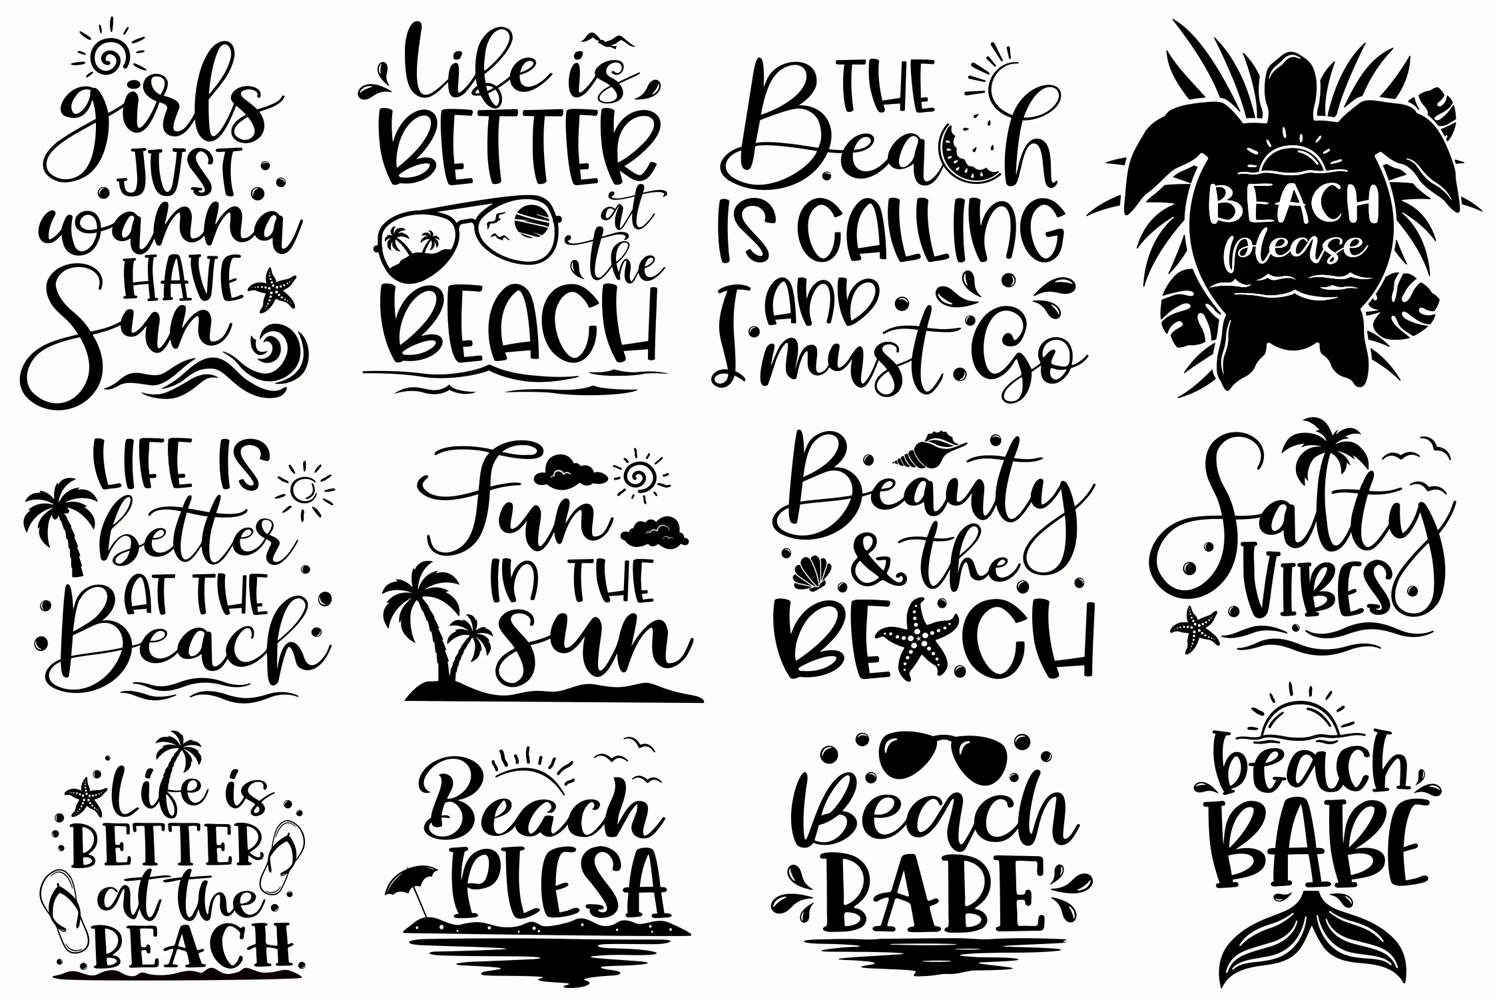 girls
JUST
wanna
HAVE
Sun
Life is
BETTER
at
the
BEACH
THE
Beach
IS CALLING
AND
I must Go
BEACH
please
LIFE IS
better
AT THE
Beach
Fun
IN THE
sun
Beauty
& the
BEACH
Salty
VIBES
Life is
BETTER
at the
BEACH
Beach
PLESA
Beach
BABE
beach
BABE